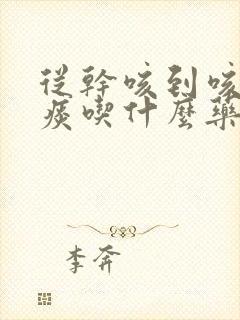 從幹咳到咳
痰喫什麼藥
李奔